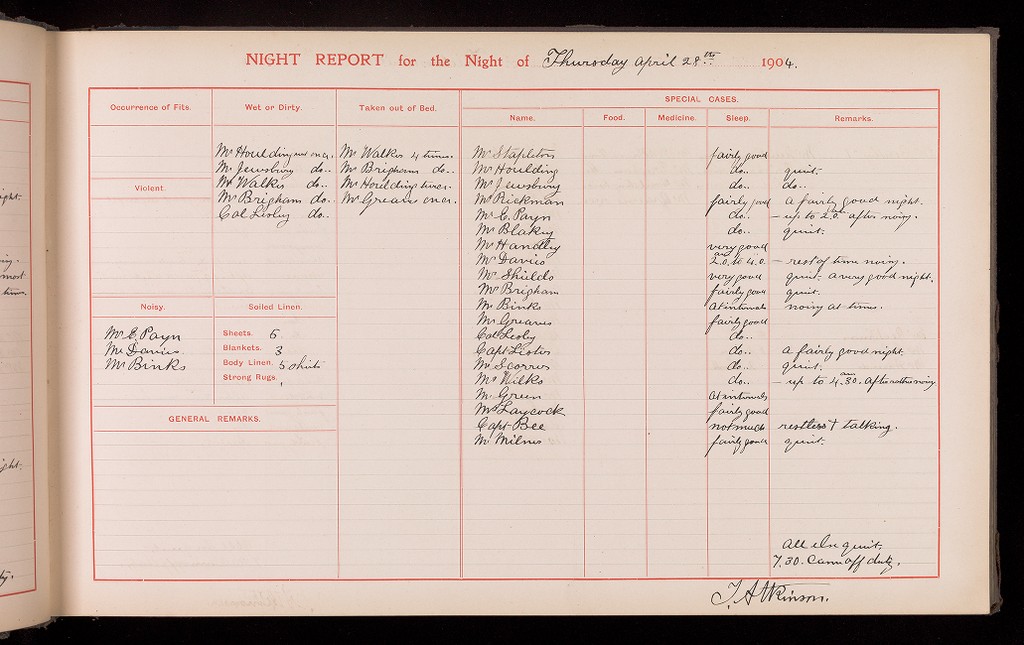 NIGHT REPORT for the Night of Thursday April 28th 1904.
Occurrence of Fits.
Wet or Dirty.
Taken out of Bed.
SPECIAL CASES.
Name. Food. Medicine. Sleep. Remarks.
Mr Houlding wet once.
Mr Jewsbury do..
Mr Walker do..
Mr Brigham do..
Col Lesley do..
Mr Walker 4 times.
Mr Brigham do..
Mr Houlding twice.
Mr Greaves once.
Violent.
Noisy.
Mr E. Payn
Mr Davies.
Mr Binks
Soiled Linen.
Sheets. 6
Blankets. 3
Body Linen. 5 shirts
Strong Rugs. 1
GENERAL REMARKS.
Mr Stapleton fairly good
Mr Houlding do.. quiet.
Mr Jewsbury do.. do..
Mr Rickman fairly good a fairly good night.
Mr E. Payn do.. – up to 2.0. after noisy.
Mr Blakey do.. quiet.
Mr Handley very good
Mr Davies 2.0. to 4.0. – rest of time noisy.
Mr Shields very good quiet. a very good night.
Mr Brigham fairly good quiet.
Mr Binks at intervals noisy at times.
Mr Greaves fairly good
Col Lesley do..
Capt Lister do.. a fairly good night.
Mr Scorrer do.. quiet.
Mr Wilks do.. – up to 4.30. am after rather noisy
Mr Green at intervals
Mr Laycock fairly good
Capt Bee not much restless & talking.
Mr Milnes fairly good quiet.
All else quiet.
7.30. Came off duty.
J. Atkinson.